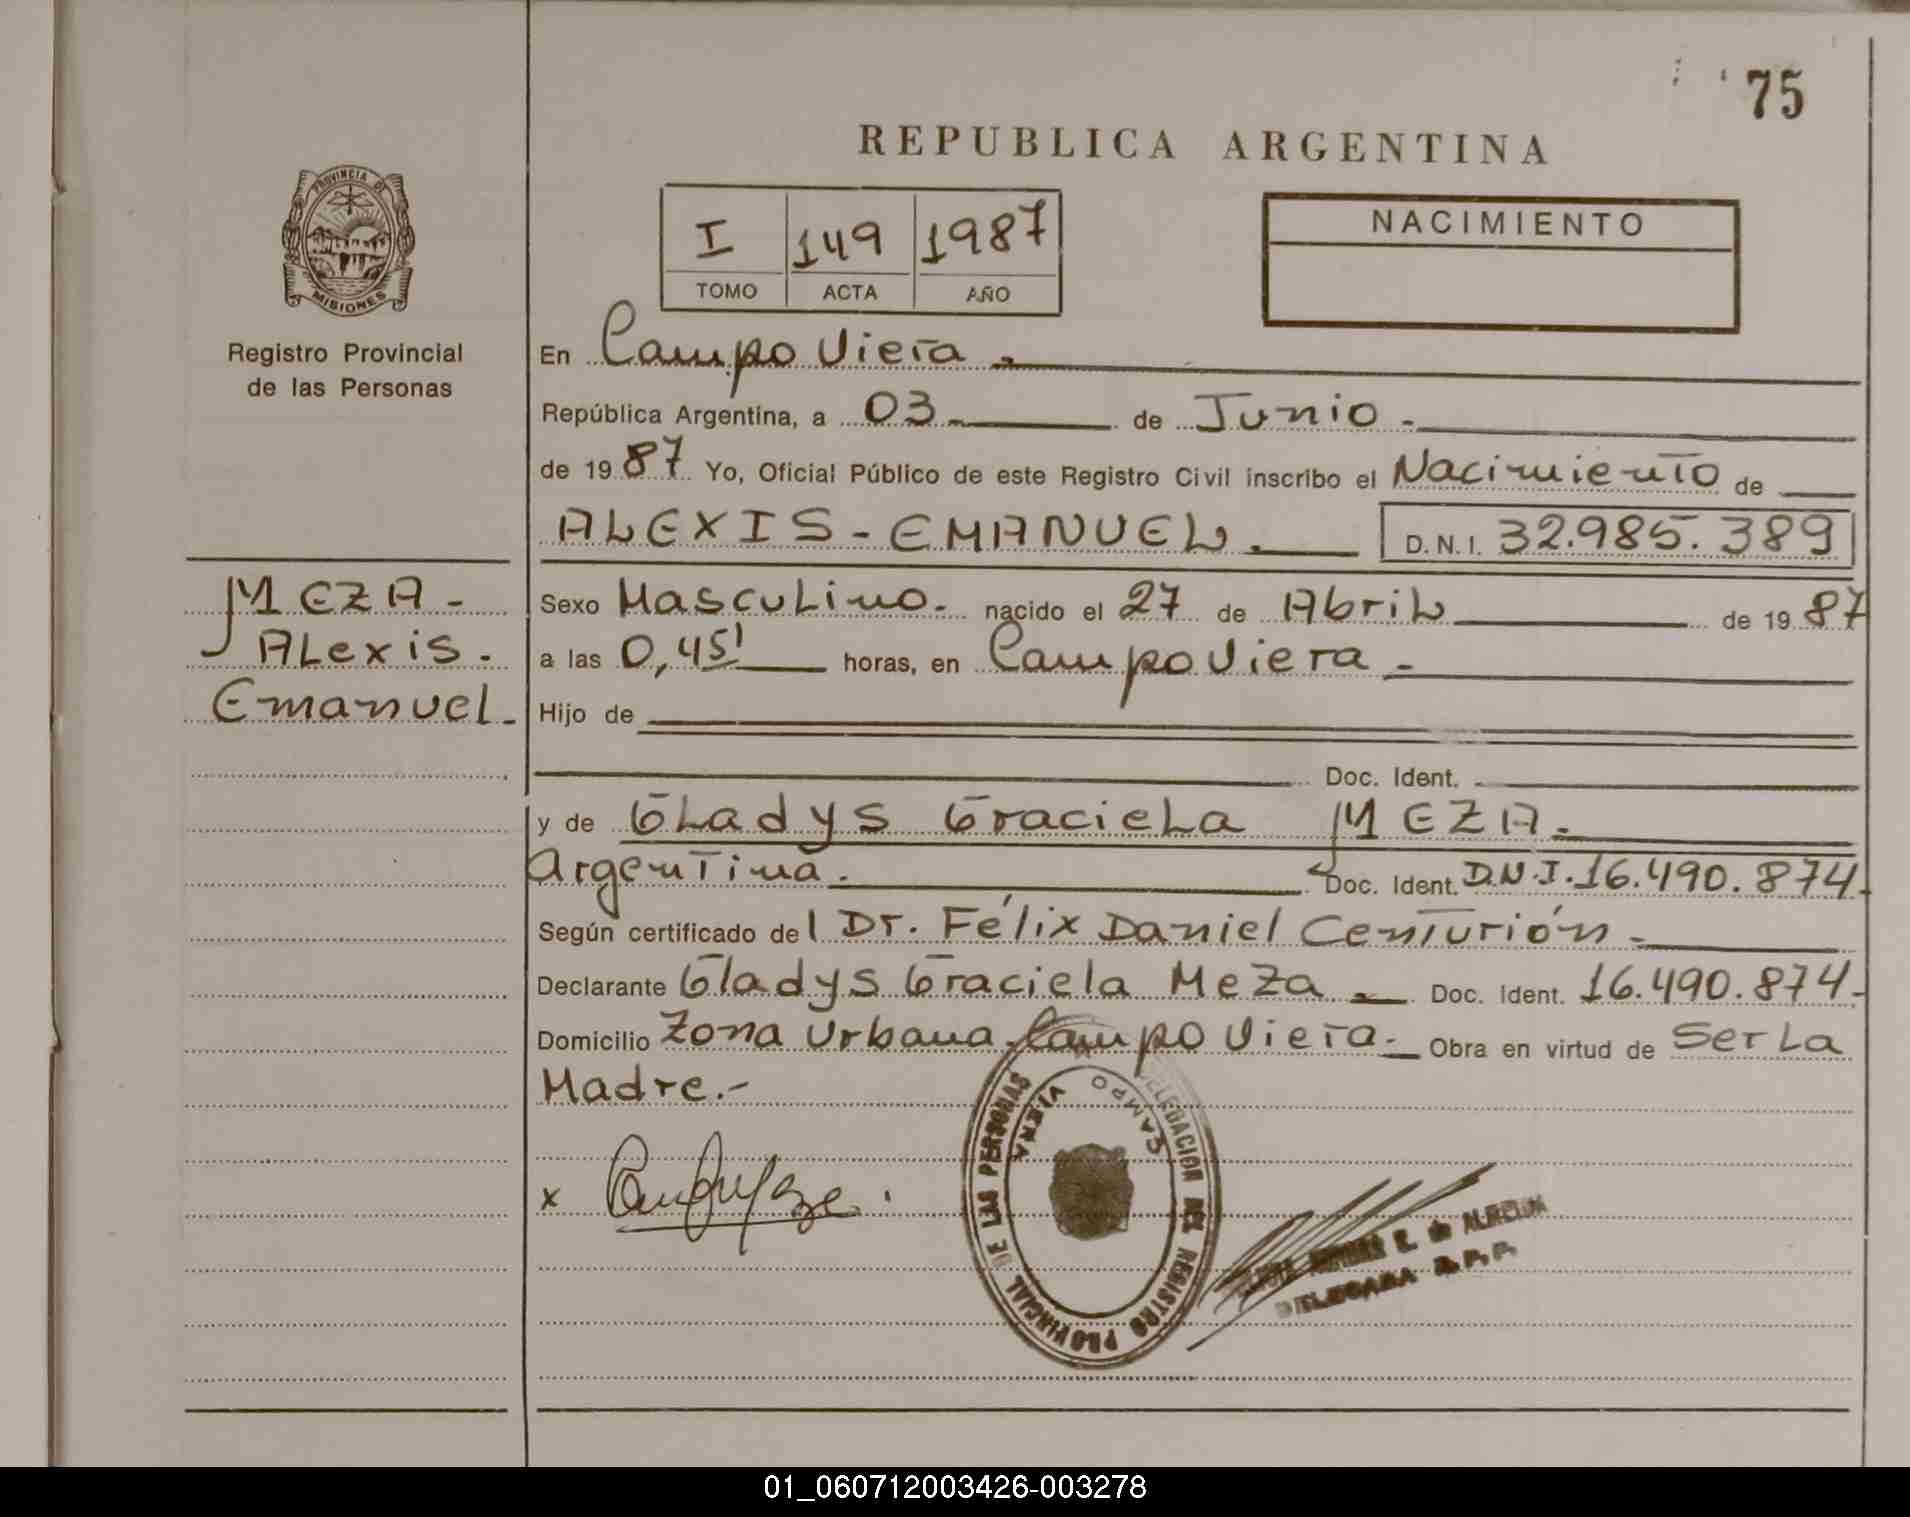 75
REPUBLICA ARGENTINA
PROVINCIA DE
MISIONES
Registro Provincial
de las Personas
I 149 1987
TOMO ACTA AÑO
NACIMIENTO
En Campo Viera.
República Argentina, a 03 de Junio.
de 1987. Yo, Oficial Público de este Registro Civil inscribo el Nacimiento de
ALEXIS-EMANUEL. D.N.I. 32.985.389
MEZA-
Alexis.
Emanuel-
Sexo Masculino- nacido el 27 de Abril de 1987
a las 0,45' horas, en Campo Viera-
Hijo de
Doc. Ident.
y de Gladys Graciela MEZA-
Argentina. Doc. Ident. D.N.I. 16.490.874-
Según certificado del Dr. Félix Daniel Centurión-
Declarante Gladys Graciela Meza- Doc. Ident. 16.490.874-
Domicilio Zona Urbana Campo Viera- Obra en virtud de Ser La
Madre.-
x
DELEGACION DEL REGISTRO PROVINCIAL DE LAS PERSONAS
CAMPO VIERA
E. de ALMEIDA
DELEGADA R.P.P.
01_060712003426-003278